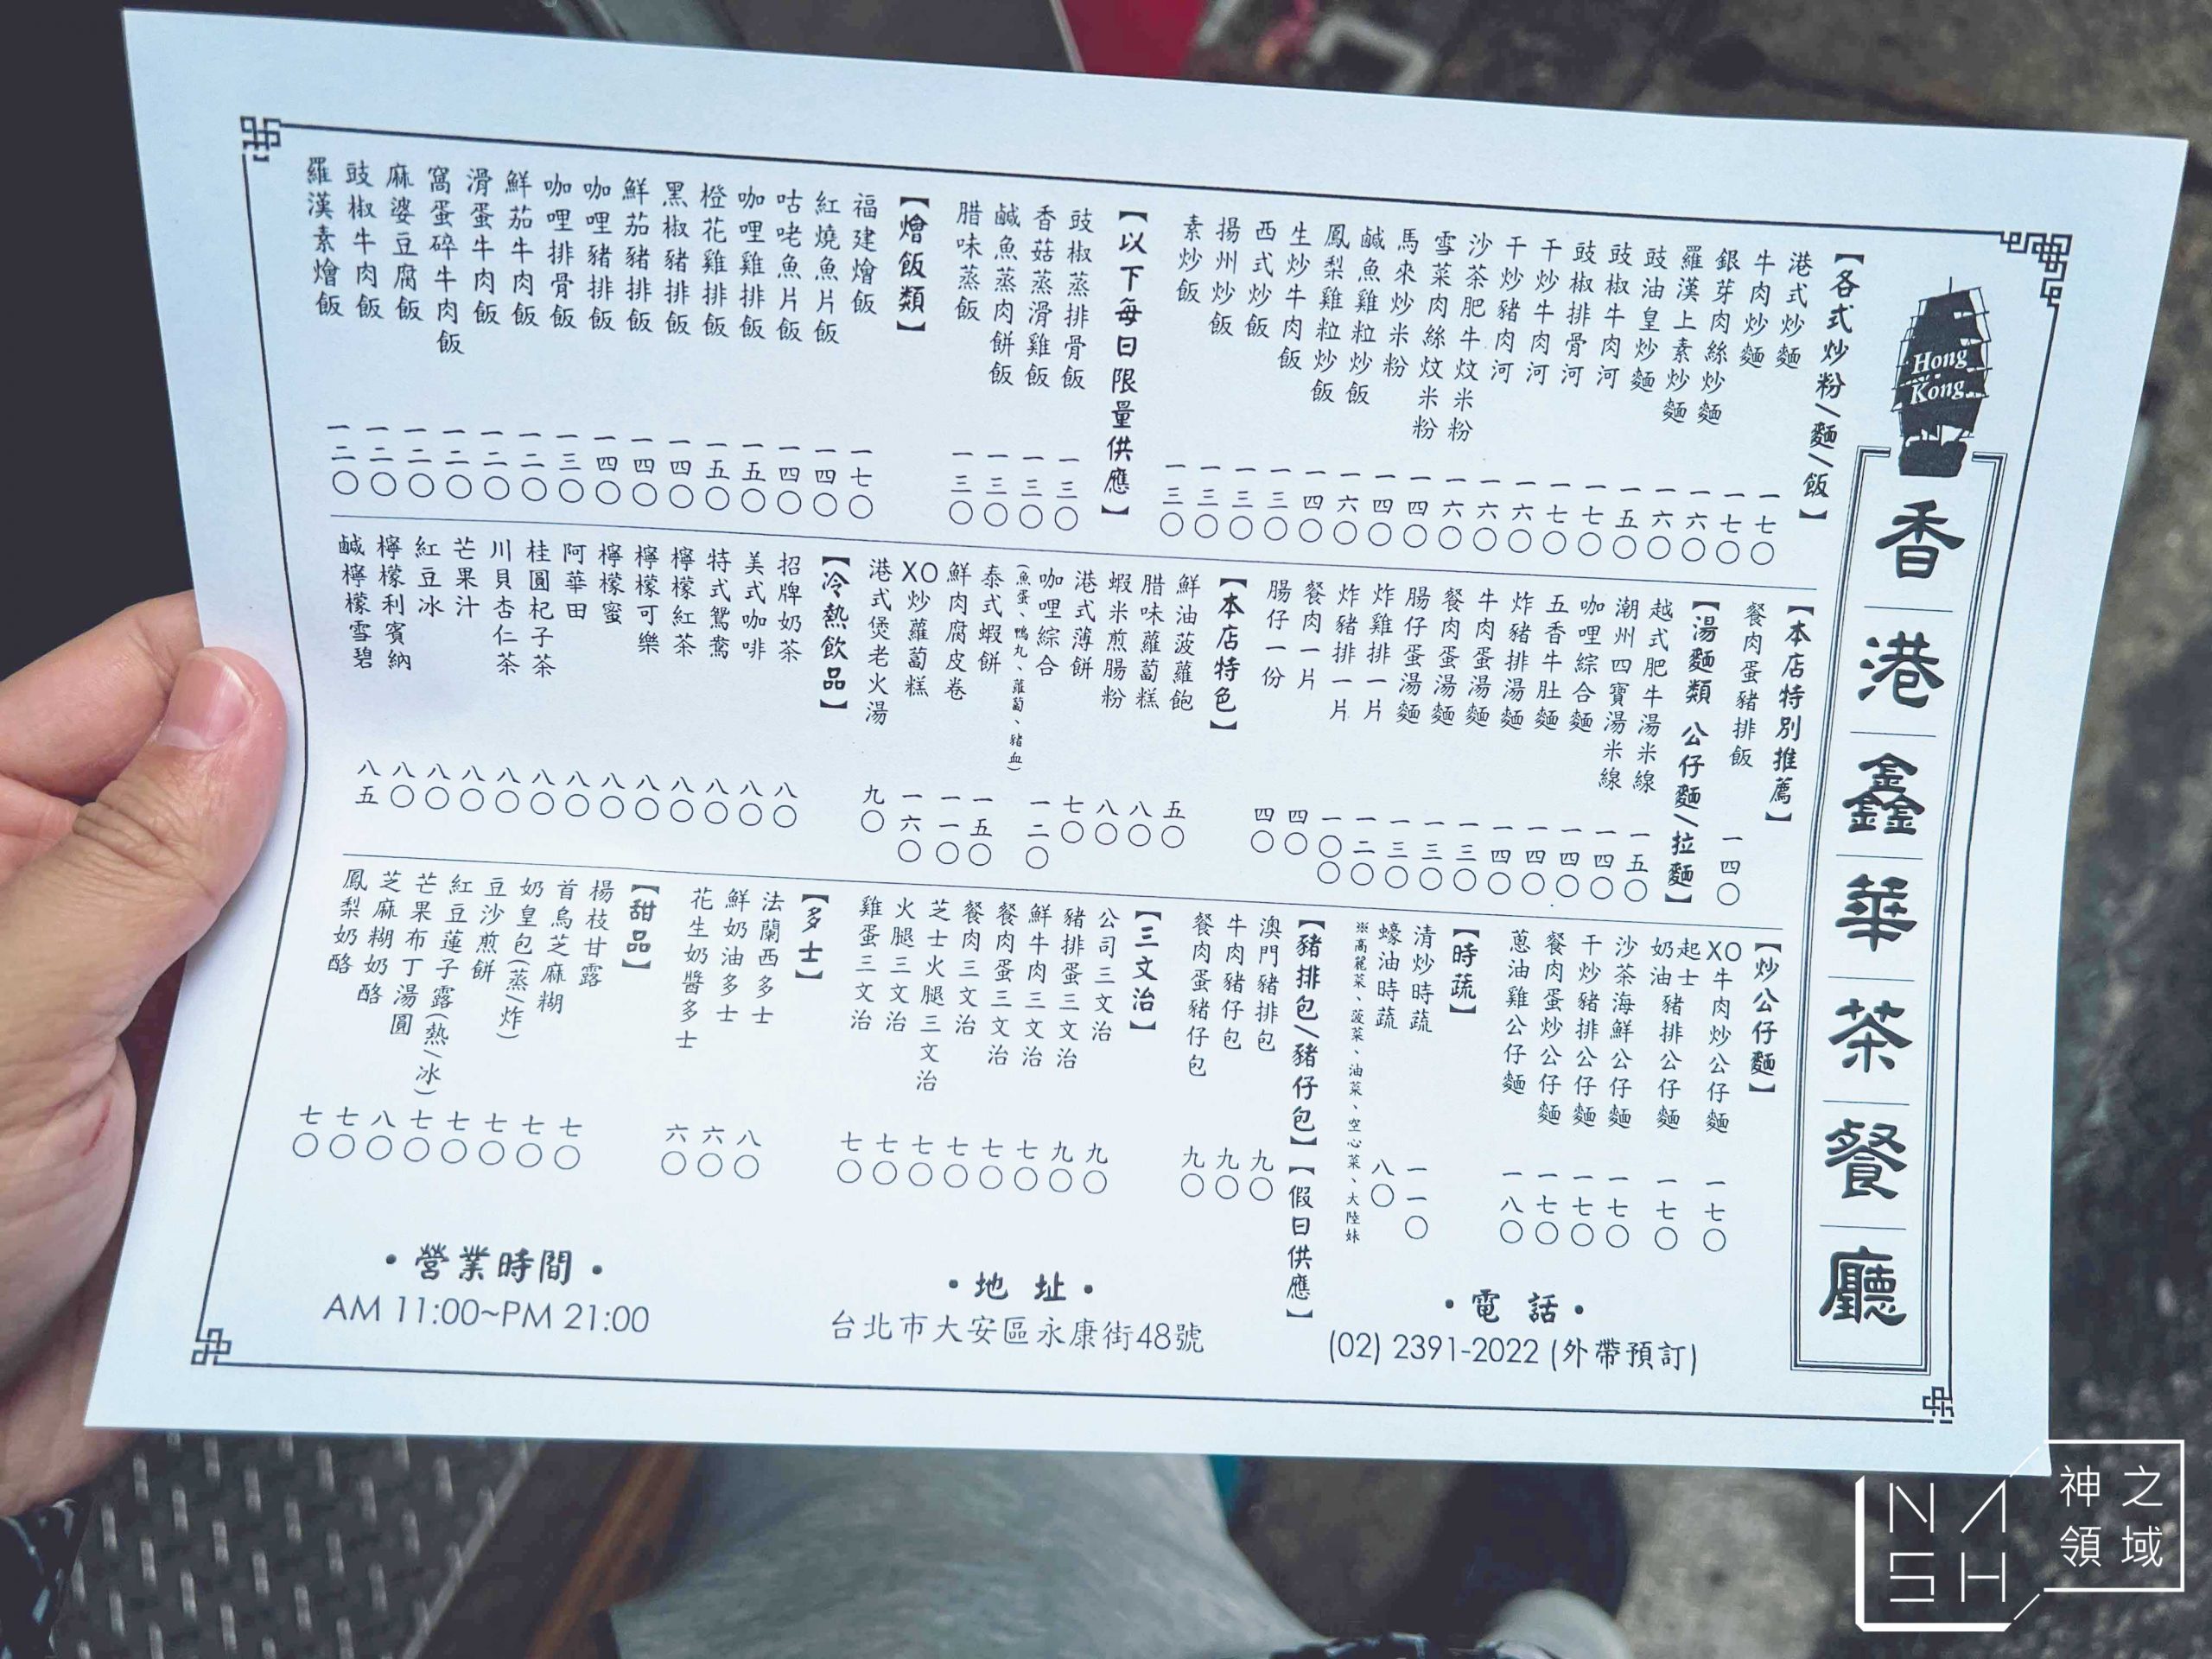 Hong Kong
香港鑫華茶餐廳
【各式炒粉/麵/飯】
港式炒麵 一七〇
牛肉炒麵 一七〇
銀芽肉絲炒麵 一六〇
羅漢上素炒麵 一六〇
豉油皇炒麵 一五〇
豉椒牛肉河 一七〇
豉椒排骨河 一七〇
干炒牛肉河 一六〇
干炒豬肉河 一六〇
沙茶肥牛炆米粉 一六〇
雪菜肉絲炆米粉 一四〇
馬來炒米粉 一四〇
鹹魚雞粒炒飯 一六〇
鳳梨雞粒炒飯 一四〇
生炒牛肉飯 一三〇
西式炒飯 一三〇
揚州炒飯 一三〇
素炒飯 一三〇
【以下每日限量供應】
豉椒蒸排骨飯 一三〇
香菇蒸滑雞飯 一三〇
鹹魚蒸肉餅飯 一三〇
腊味蒸飯 一三〇
【燴飯類】
福建燴飯 一七〇
紅燒魚片飯 一四〇
咕咾魚片飯 一四〇
咖哩雞排飯 一五〇
橙花雞排飯 一五〇
黑椒豬排飯 一四〇
鮮茄豬排飯 一四〇
咖哩豬排飯 一四〇
咖哩排骨飯 一三〇
鮮茄牛肉飯 一二〇
滑蛋牛肉飯 一二〇
窩蛋碎牛肉飯 一二〇
麻婆豆腐飯 一二〇
豉椒牛肉飯 一二〇
羅漢素燴飯 一二〇
【本店特別推薦】
餐肉蛋豬排飯 一四〇
【湯麵類 公仔麵/拉麵】
越式肥牛湯米線 一五〇
潮州四寶湯米線 一四〇
咖哩綜合麵 一四〇
五香牛肚麵 一四〇
炸豬排湯麵 一四〇
牛肉蛋湯麵 一三〇
餐肉蛋湯麵 一三〇
腸仔蛋湯麵 一三〇
炸雞排一片 一二〇
炸豬排一片 一〇〇
餐肉一片 四〇
腸仔一份 四〇
【本店特色】
鮮油菠蘿飽 五〇
腊味蘿蔔糕 八〇
蝦米煎腸粉 八〇
港式薄餅 七〇
咖哩綜合 一二〇
(魚蛋、鴨丸、蘿蔔、豬血)
泰式蝦餅 一五〇
鮮肉腐皮卷 一一〇
XO炒蘿蔔糕 一六〇
港式煲老火湯 九〇
【冷熱飲品】
招牌奶茶 八〇
美式咖啡 八〇
特式鴛鴦 八〇
檸檬紅茶 八〇
檸檬可樂 八〇
檸檬蜜 八〇
阿華田 八〇
桂圓杞子茶 八〇
川貝杏仁茶 八〇
芒果汁 八〇
紅豆冰 八〇
檸檬利賓納 八〇
鹹檸檬雪碧 八五
【炒公仔麵】
XO牛肉炒公仔麵 一七〇
起士奶油豬排公仔麵 一七〇
沙茶海鮮公仔麵 一七〇
干炒豬排公仔麵 一七〇
餐肉蛋炒公仔麵 一七〇
蔥油雞公仔麵 一八〇
【時蔬】
清炒時蔬 一一〇
蠔油時蔬 八〇
※高麗菜、菠菜、油菜、空心菜、大陸妹
【豬排包/豬仔包】【假日供應】
澳門豬排包 九〇
牛肉豬仔包 九〇
餐肉蛋豬仔包 九〇
【三文治】
公司三文治 九〇
豬排蛋三文治 九〇
鮮牛肉三文治 七〇
餐肉蛋三文治 七〇
餐肉三文治 七〇
芝士火腿三文治 七〇
火腿三文治 七〇
雞蛋三文治 七〇
【多士】
法蘭西多士 八〇
鮮奶油多士 六〇
花生奶醬多士 六〇
【甜品】
楊枝甘露 七〇
首烏芝麻糊 七〇
奶皇包(蒸/炸) 七〇
豆沙煎餅 七〇
紅豆蓮子露(熱/冰) 七〇
芒果布丁湯圓 八〇
芝麻糊奶酪 七〇
鳳梨奶酪 七〇
•電 話•
(02) 2391-2022 (外帶預訂)
•地 址•
台北市大安區永康街48號
•營業時間•
AM 11:00~PM 21:00
NASH
神之領域